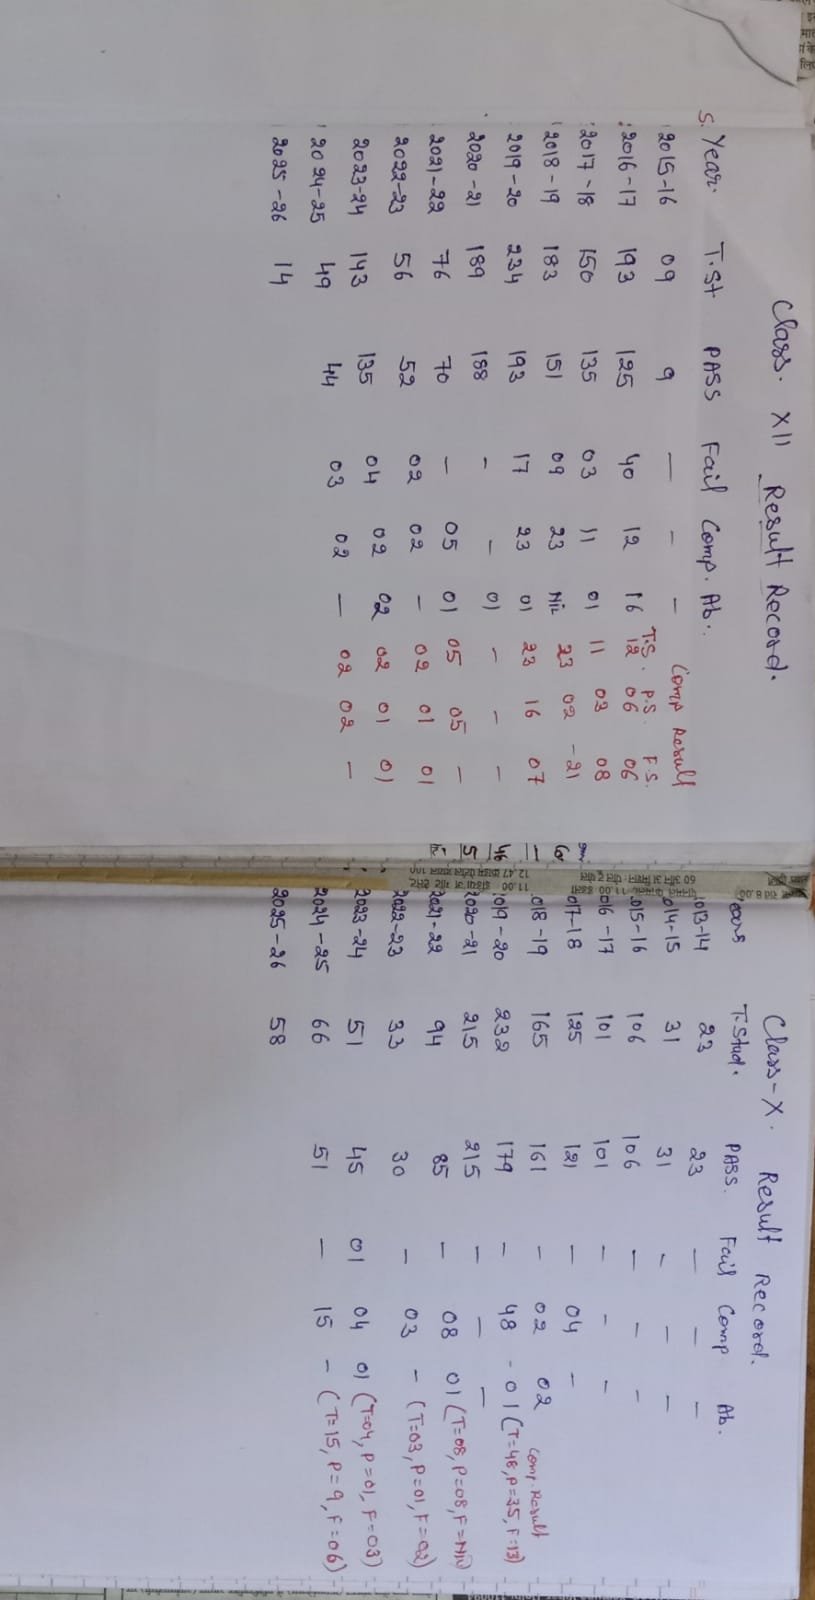 Class. XII Result Record.
S. Year. T.St PASS Fail Comp. Ab.. Comp Result
T.S. P.S. F.S.
2015-16 09 9 — - -
2016-17 193 125 40 12 16 12 06 06
2017-18 150 135 03 11 01 11 03 08
2018-19 183 151 09 23 Nil 23 02 -21
2019-20 234 193 17 23 01 23 16 07
2020-21 189 188 - - 01 - - -
2021-22 76 70 - 05 01 05 05 -
2022-23 56 52 02 02 - 02 01 01
2023-24 143 135 04 02 02 02 01 01
2024-25 49 44 03 02 — 02 02 —
2025-26 14
Class-X. Result Record.
ears T.Stud. PASS. Fail Comp Ab.
013-14 23 23 - - -
014-15 31 31 - - -
015-16 106 106 - - -
016-17 101 101 - - -
017-18 125 121 - 04 -
018-19 165 161 - 02 02 Comp. Result
019-20 232 179 - 48 - 01 (T=48, P=35, F=13)
2020-21 215 215 - - -
2021-22 94 85 - 08 01 (T=08, P=08, F=Nil)
2022-23 33 30 - 03 - (T=03, P=01, F=02)
2023-24 51 45 01 04 01 (T=04, P=01, F=03)
2024-25 66 51 - 15 - (T=15, P=9, F=06)
2025-26 58